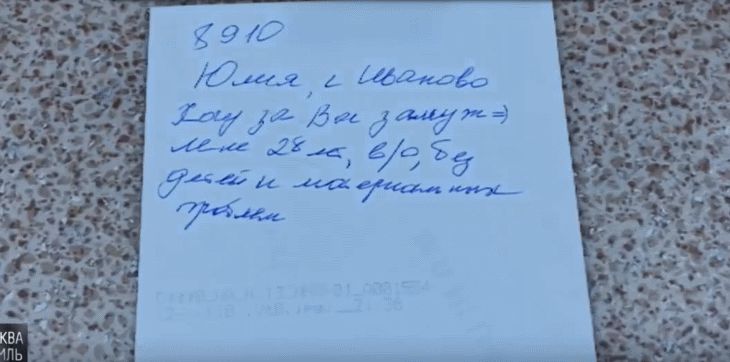 8910
Юлия, г Иваново
Хочу за Вас замуж =)
мне 28 лет, в/о, без
детей и материальных
проблем
КВА
ИЛЬ